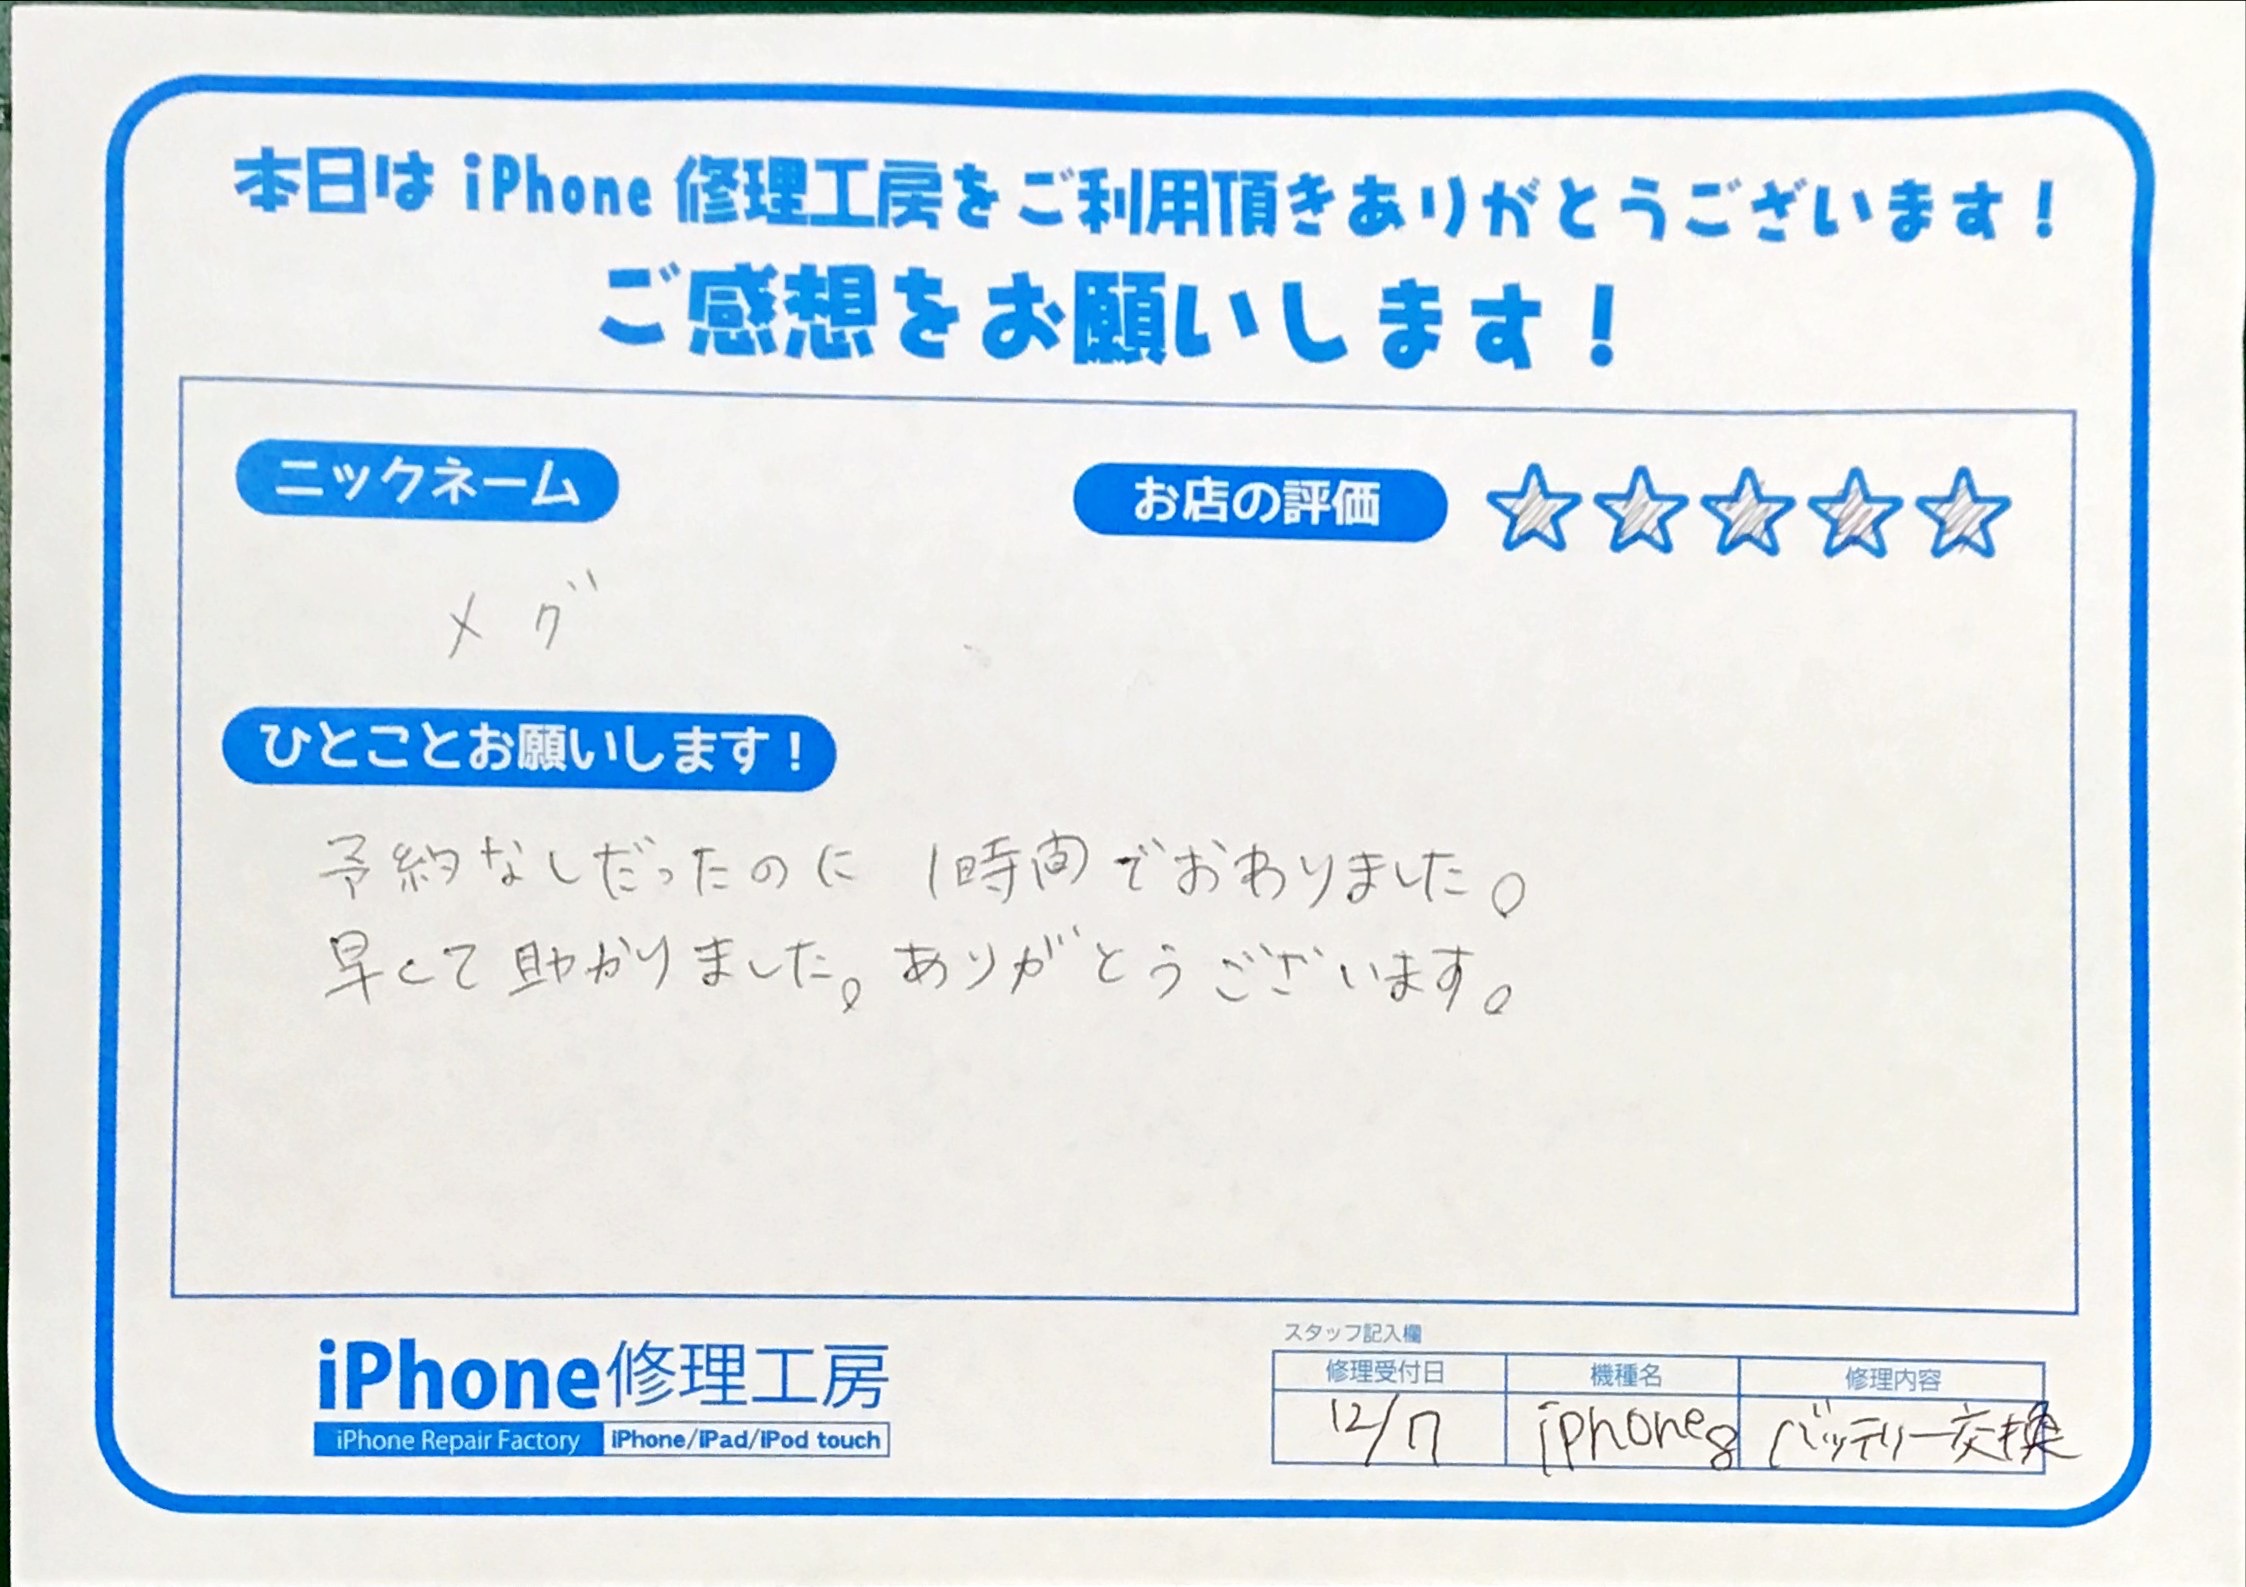 本日は iPhone 修理工房をご利用頂きありがとうございます！
ご感想をお願いします！
ニックネーム
お店の評価
メグ
ひとことお願いします！
予約なしだったのに 1時間でおわりました。
早くて助かりました。ありがとうございます。
iPhone修理工房
iPhone Repair Factory iPhone/iPad/iPod touch
スタッフ記入欄
修理受付日 機種名 修理内容
12/7 iphone8 バッテリー交換